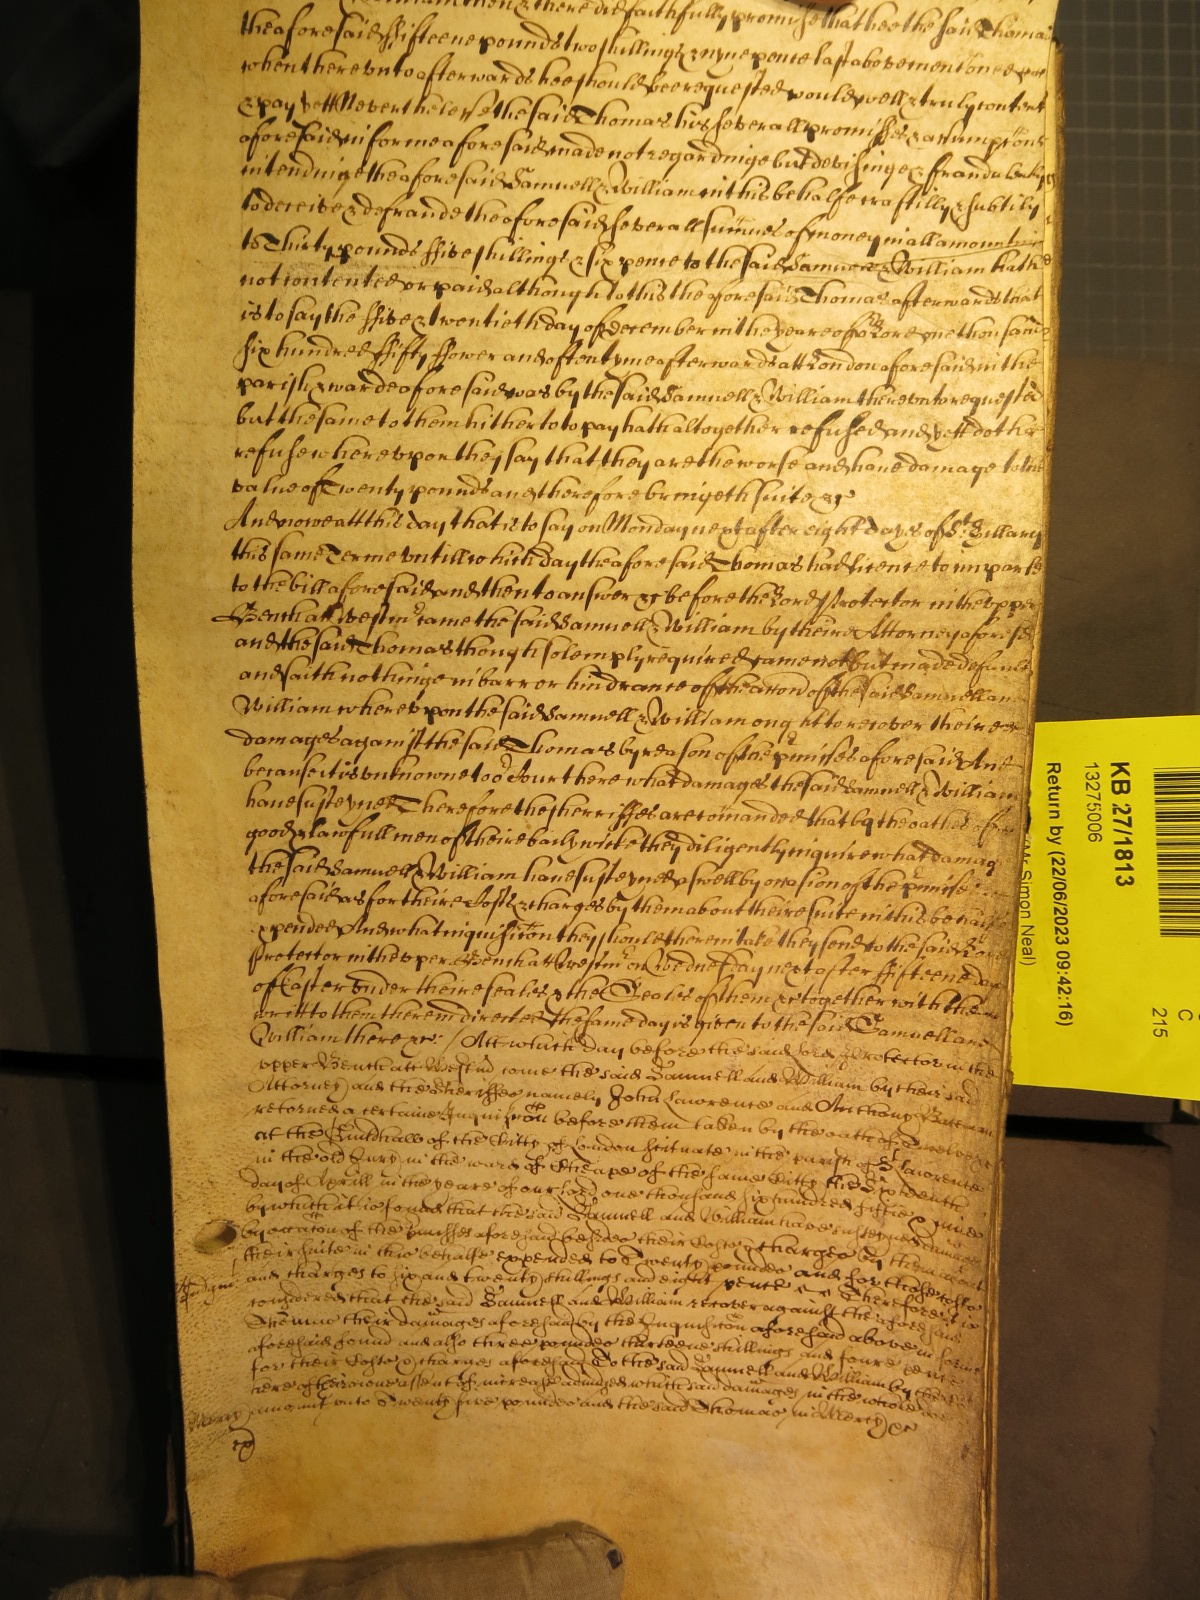 then & there did faithfully promise that hee the said Thomas
the aforesaid ffifteene pounds two shillings & nyne pence last above mentioned
when therevnto afterwards hee should bee requested would well & truly content
& pay yett Neverthelesse the said Thomas his severall promisses & assumptions
aforesaid in forme aforesaid made not regardinge but devisinge & fraudulently
intendinge the aforesaid Samuell & William in this behalfe craftilly & subtilly
to deceive & defraude the aforesaid severall summes of money in all amountinge
to Thirty pounds ffive shillings & six pence to the said Samuell & William hath
not contented or paid although to this the aforesaid Thomas afterwards that
is to say the ffive & twentieth day of december in the yeare of our Lord one thousand
six hundred ffifty ffower and often tymes afterwards att London aforesaid in the
parish & warde aforesaid was by the said Samuell & William therevnto requested
but the same to them hitherto to pay hath altogether refused and yett doth
refuse wherevpon they say that they are the worse and have damage to the
value of Twenty pounds and therefore bringeth suite &c
And nowe att this day that is to say on Monday next after eight dayes of St. Hillary
this same Terme vntill which day the aforesaid Thomas had licence to imparle
to the bill aforesaid and then to answer &c before the Lord Protector in the vpper
Bench att Westmr came the said Samuell & William by theire Attorney aforesd
and the said Thomas though solemply required came not but made default
and saith nothinge in barr or hindrance of the accon of the said Samuell and
William wherevpon the said Samuell & William ought to recover theire
damages against the said Thomas by reason of the pmisses aforesaid And
because it is vnknowne to ye Court here what damages the said Samuell & William
have susteyned Therefore the sherriffes are comanded that by the oathes of
good & lawfull men of theire bailywicke they diligently inquire what damages
the said Samuell & William have susteyned aswell by occasion of the pmisses
aforesaid as for theire Costs & charges by them about theire suite in this behalfe
expended And what inquisicon they should therein take they send to the said Lord
Protector in the vpper Bench att Westmr on Wednesday next after ffifteene dayes
of Easter vnder theire seales & the Seales of them &c together with the
writt to them therein directed the same day is given to the said Samuell and
William there &c: / Att which day before the said Lord Protector in the
vpper Bench att Westmr come the said Samuell and William by their said
Attorney and the Sheriffes namely John Lawrence and Anthony Bateman
returned a certaine Inquisicon before them taken by the oath of Twelve
at the Guildhall of the Citty of London scituate in the parish of St Lawrence
in the old Jury in the ward of Cheape of the same Citty the Sixteenth
day of Aprill in the yeare of our Lord one thousand six hundred fiftie &
by which it is found that the said Samuell and William have susteyned damages
by occacon of the pmisses aforesaid besides their Costs & charges by them about
their suite in this behalfe expended to Twenty pounds and for those costs
and charges to six and twenty shillings and eight pence Therefore it is
considered that the said Samuell and William recover against the aforesaid
Thomas their damages aforesaid by the Inquisicon aforesaid above in forme
aforesaid found and also three poundes thirteene shillings and foure pence
for their Costs & charges aforesaid To the said Samuell and William by the Court
here of theire owne assent of increase adiudged which said damages in the whole doe
Mercy amount vnto Twenty five poundes and the said Thomas in Mercy &c
KB 27/1813
13275006
Return by (22/06/2023 09:42:16)
(Mr Simon Neal)
C
215